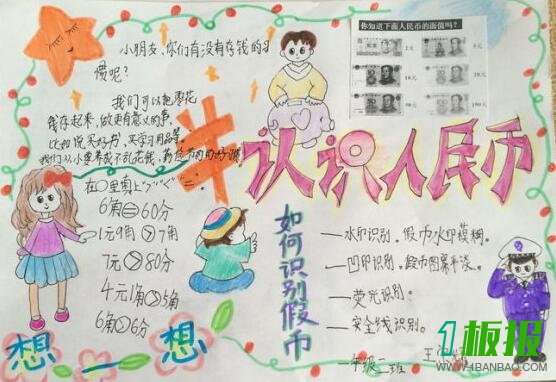 小朋友,你们有没有存钱的习
惯呢?
我们可以把零花
钱存起来,做更有意义的事,
比如说买好书,买学习用品等。
我们从小要养成不乱花钱,
在○里填上">""<""="
6角=60分
1元9角>7角
7元>80分
4元1角>5角
6角>6分
想一想
你知道下面人民币的面值吗?
认识人民币
如何识别假币
—水印识别。假币水印模糊。
—凹印识别,假币图案平淡。
—荧光识别。
—安全线识别。
一年级二班
王
1板报
WWW.1BANBAO.COM